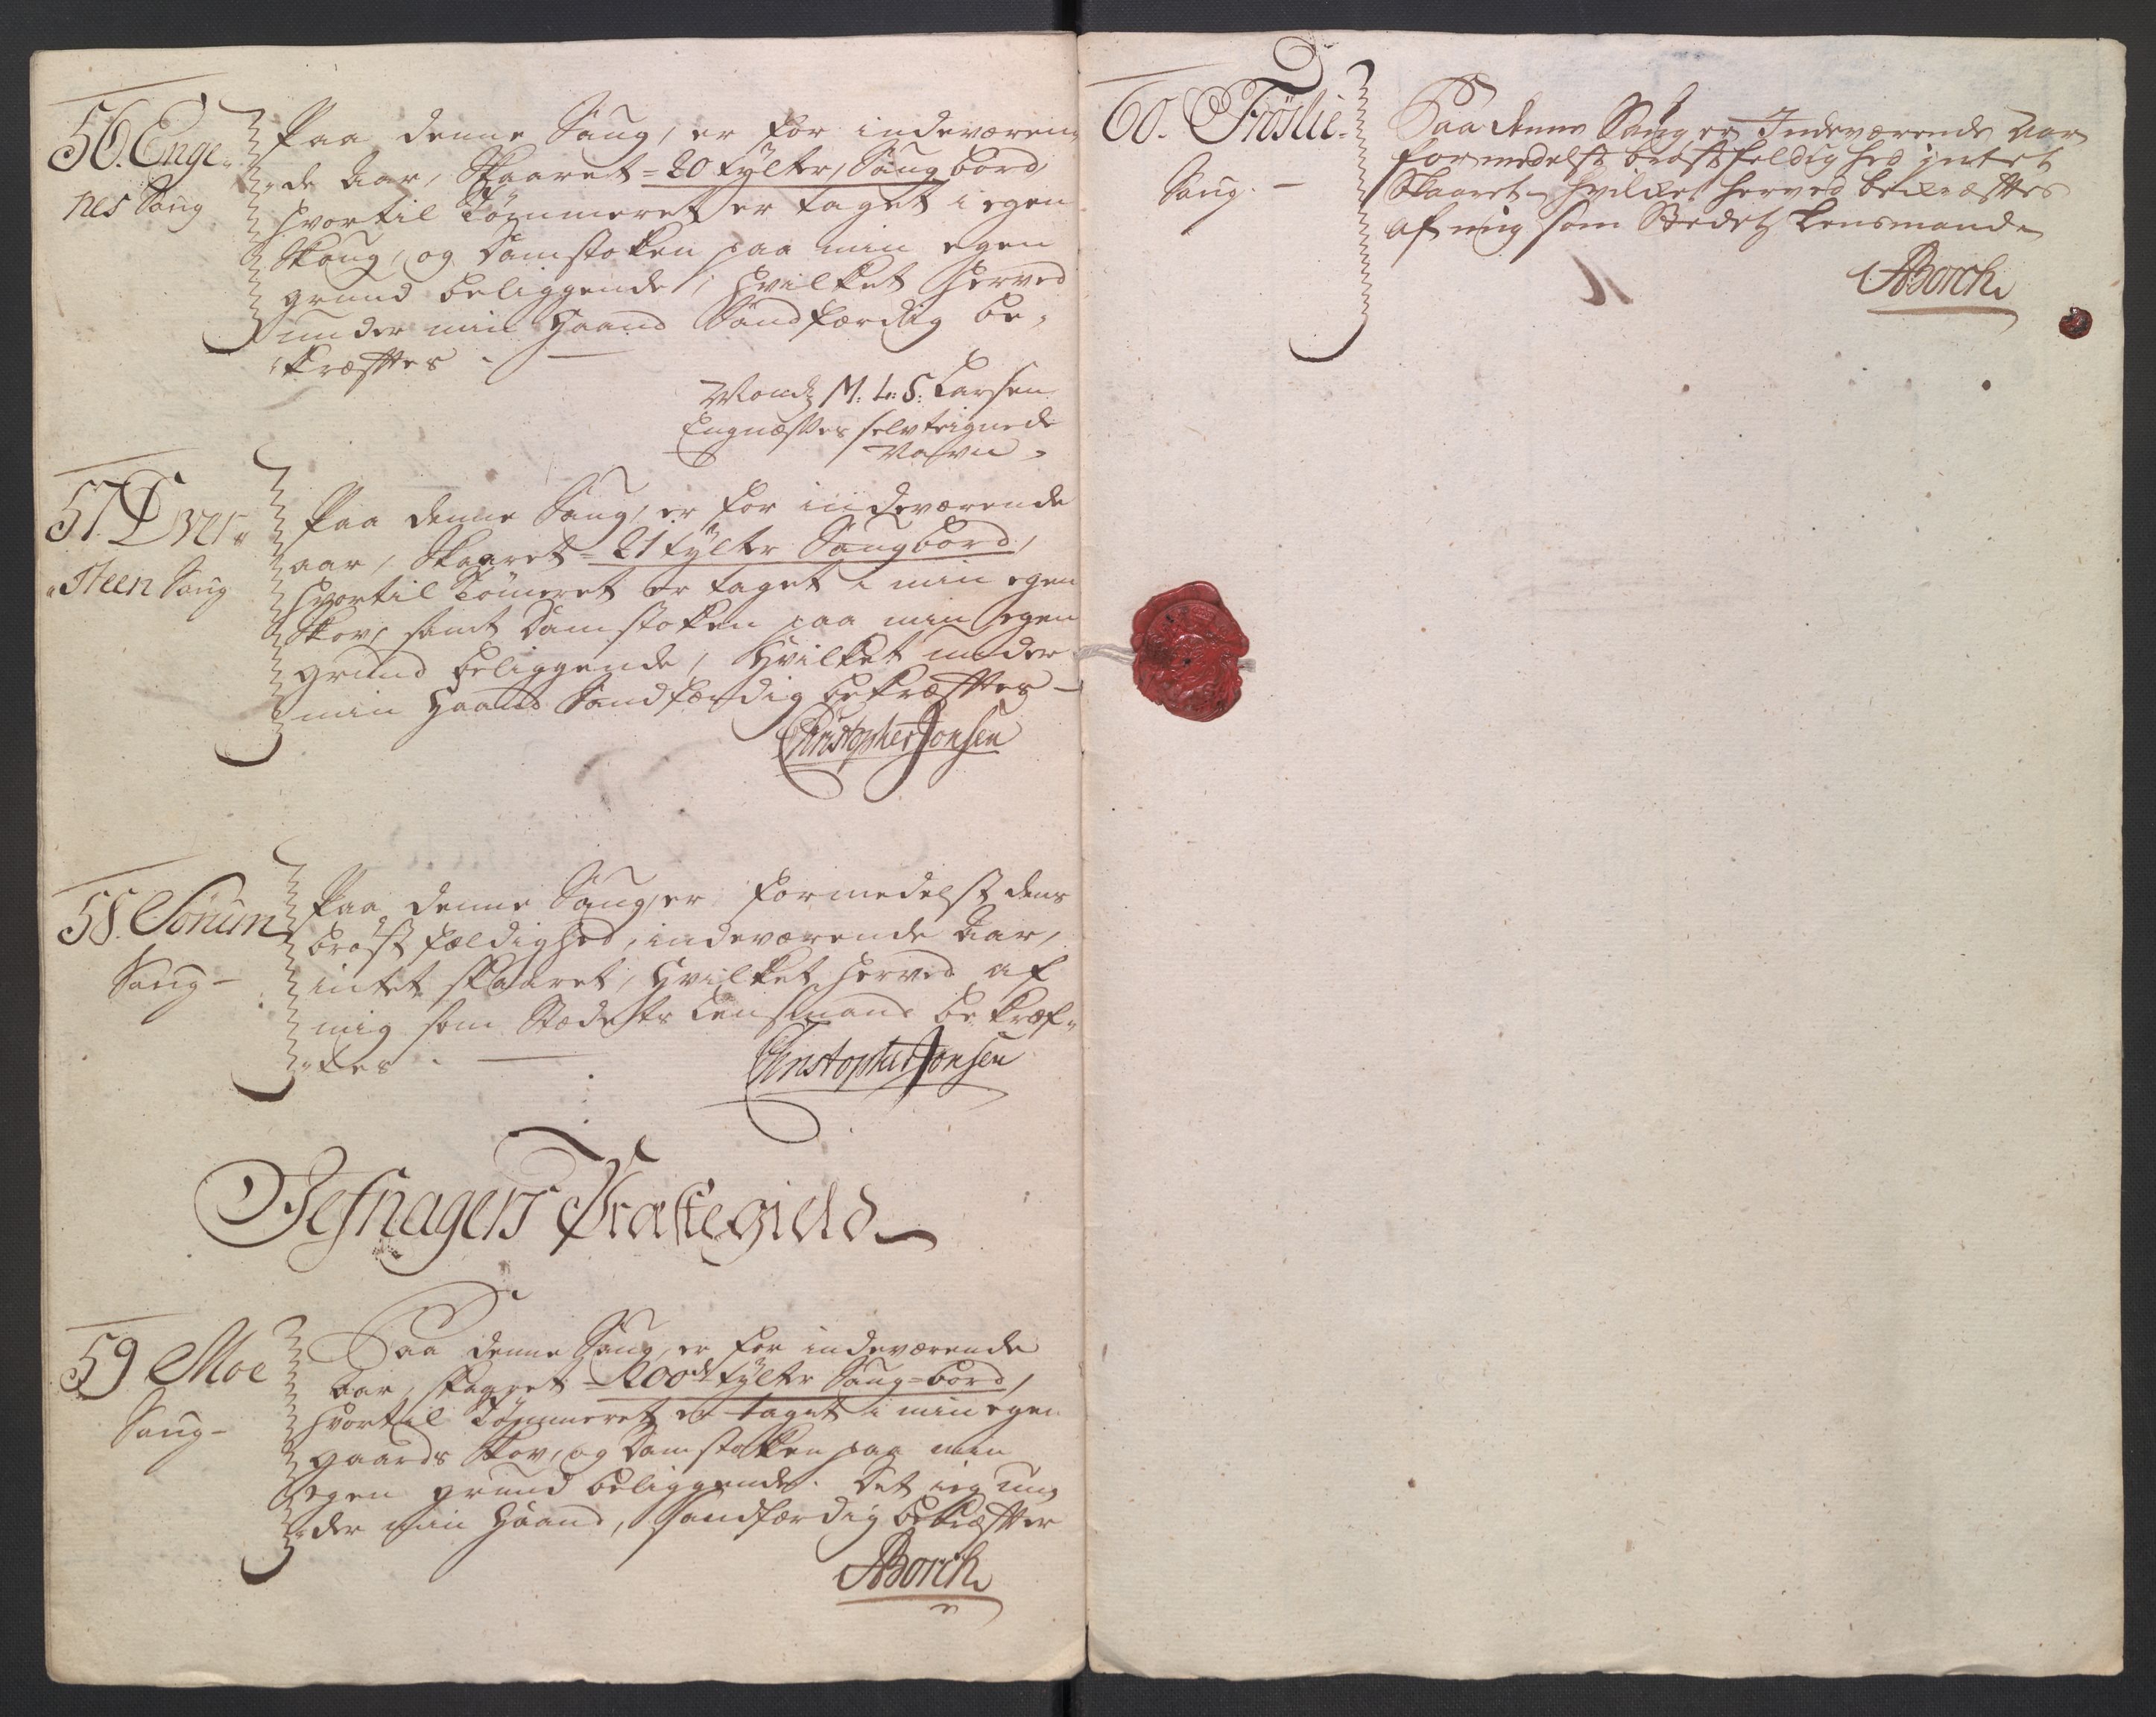 56. Enge-
nes Saug
Paa denne Saug, er for indeværen-
-de Aar, Skaaret = 20 tylter, Saugbord,
hvortil Tømmeret er taget i egen
Skoug, og Damstoken paa min egen
grund beliggende, hvilket herved
under min Haand Sandfærdig be-
-kræfftes -
M: L: S: Larsen
Engnæsses selvteignede
Nafvn
57.
-steen Saug
Paa denne Saug, er for indeværende
aar, Skaaret = 21 tylter Saugbord,
hvortil Tømeret er taget i min egen
Skov, samt Damstoken paa min egen
grund beliggende, Hvilket under
min Haand Sandfærdig bekræfftes -
Christopher Jonsen
58. Sørum
Saug -
Paa denne Saug, er formedelst dens
brøstfældighed, indeværende Aar,
intet skaaret, Hvilket herved af
mig som Stedets Lensmand bekræf-
-tes -
Christopher Jonsen
Jefnagers Præstegield
59 Moe
Saug -
Paa denne Saug, er for indeværende
Aar, skaaret = 200de tylter Saug-bord,
hvortil Tømmeret er taget i min egen
gaards Skov, og Damstokken paa min
egen grund beliggende. Det ieg un-
-der min Haand, sandfærdig bekræffter
ABorch
60. Frøslie
Saug. -
Paa denne Saug er Indeværende Aar
formedelst brøstfeldighed intet
Skaaret - hvilket herved bekræfftes
af mig som Stedets Lensmand
ABorch